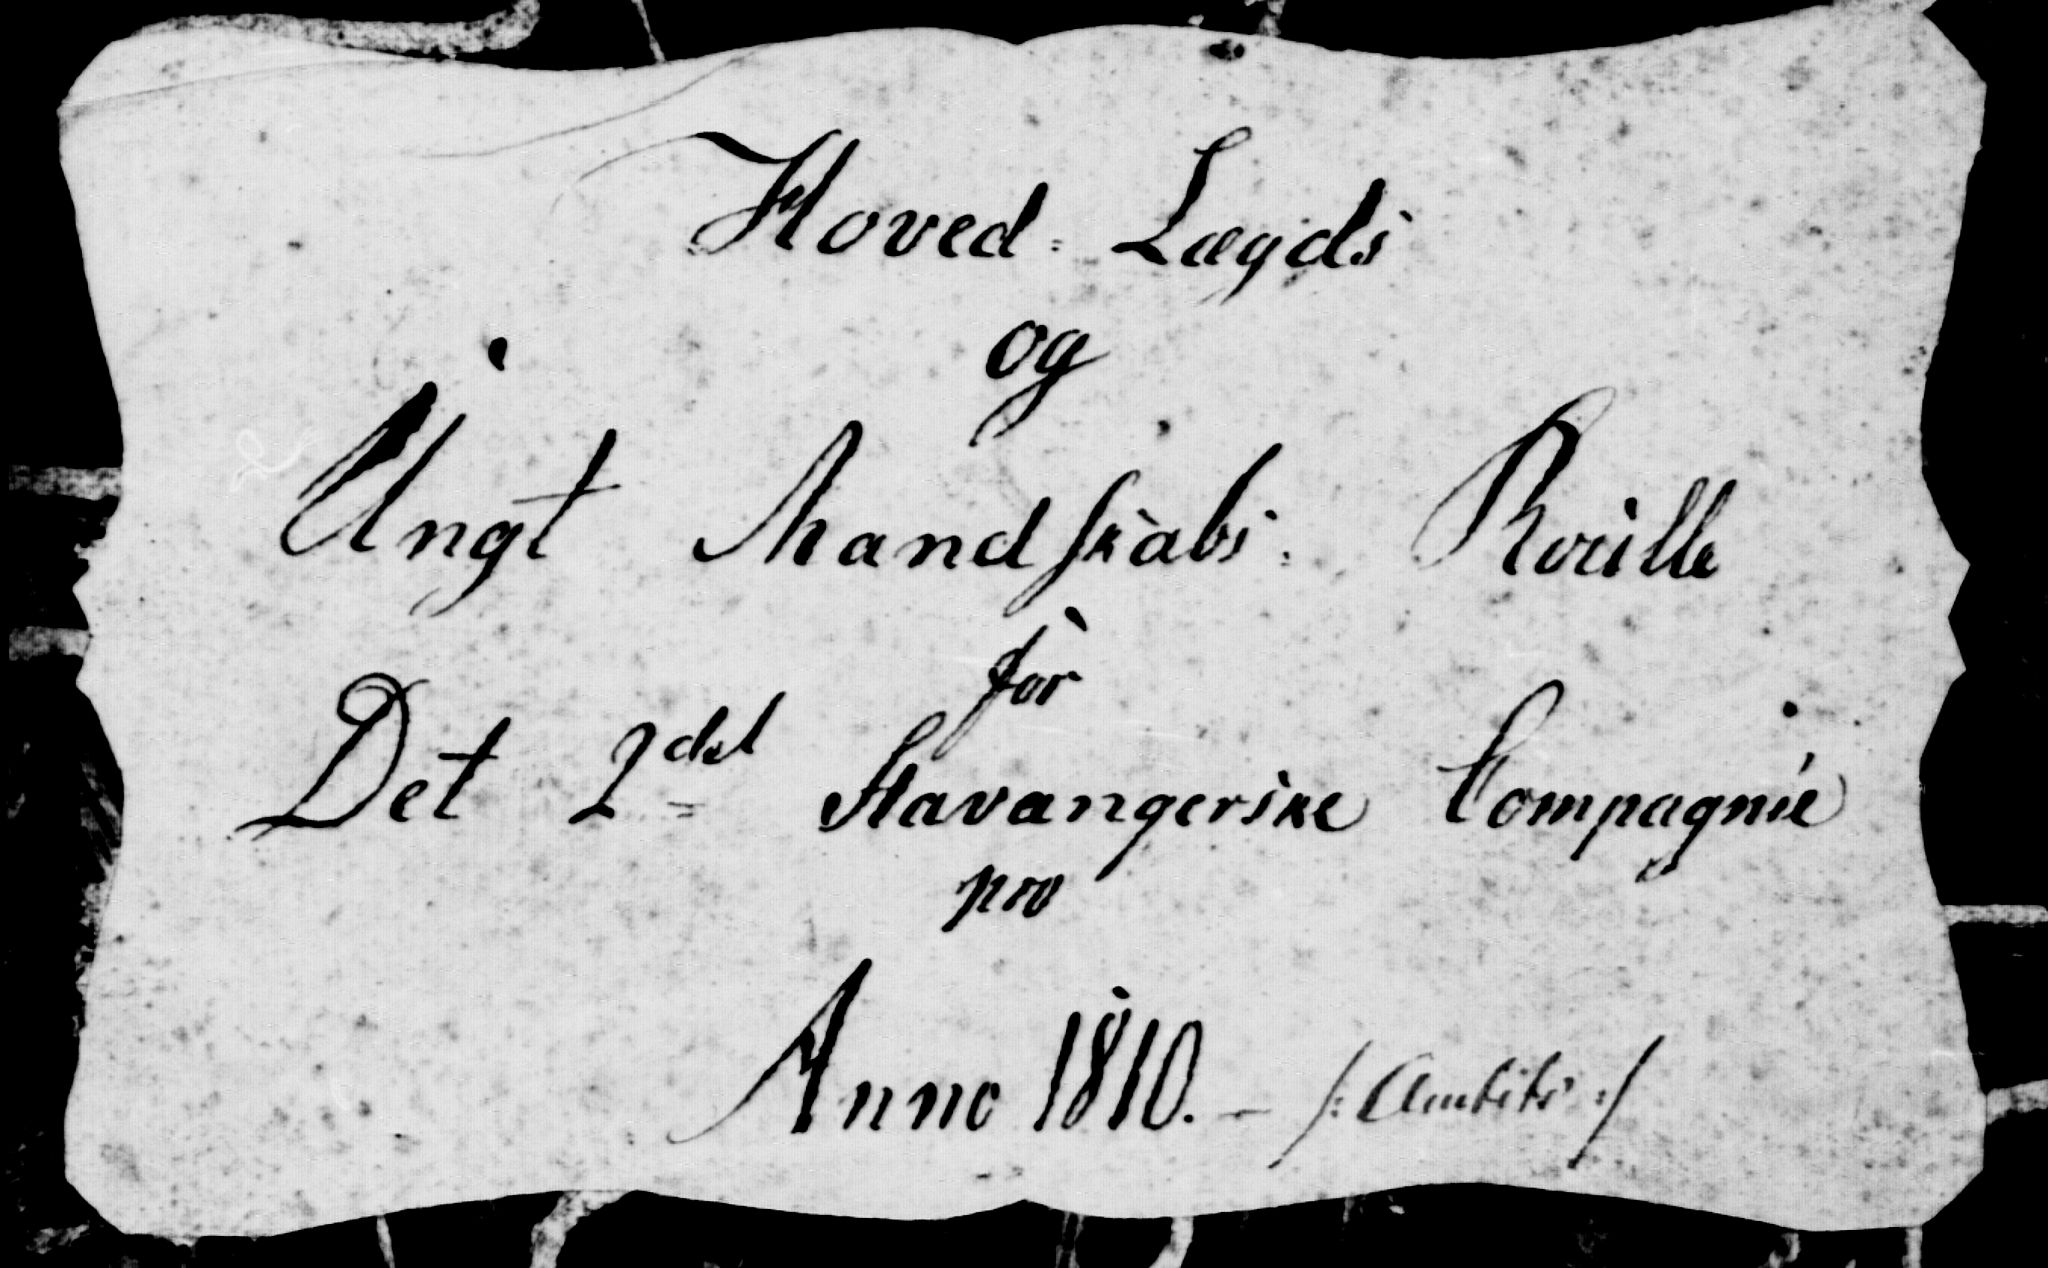 Hoved-Lægds
og
Ungt Mandskabs- Roulle
for
Det 2det Stavangerske Compagnie
pro
Anno 1810. — /: Amtets :/